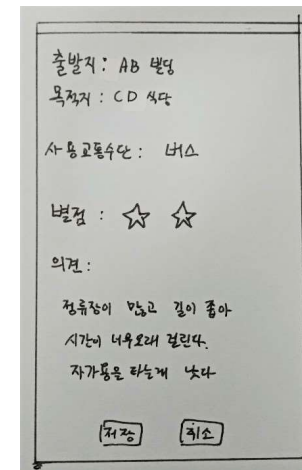 출발지 : AB 빌딩
목적지 : CD 식당
사용교통수단 : 버스
별점 : ☆ ☆
의견 :
정류장이 많고 길이 좁아
시간이 너무오래 걸린다.
자가용을 타는게 낫다
저장 취소